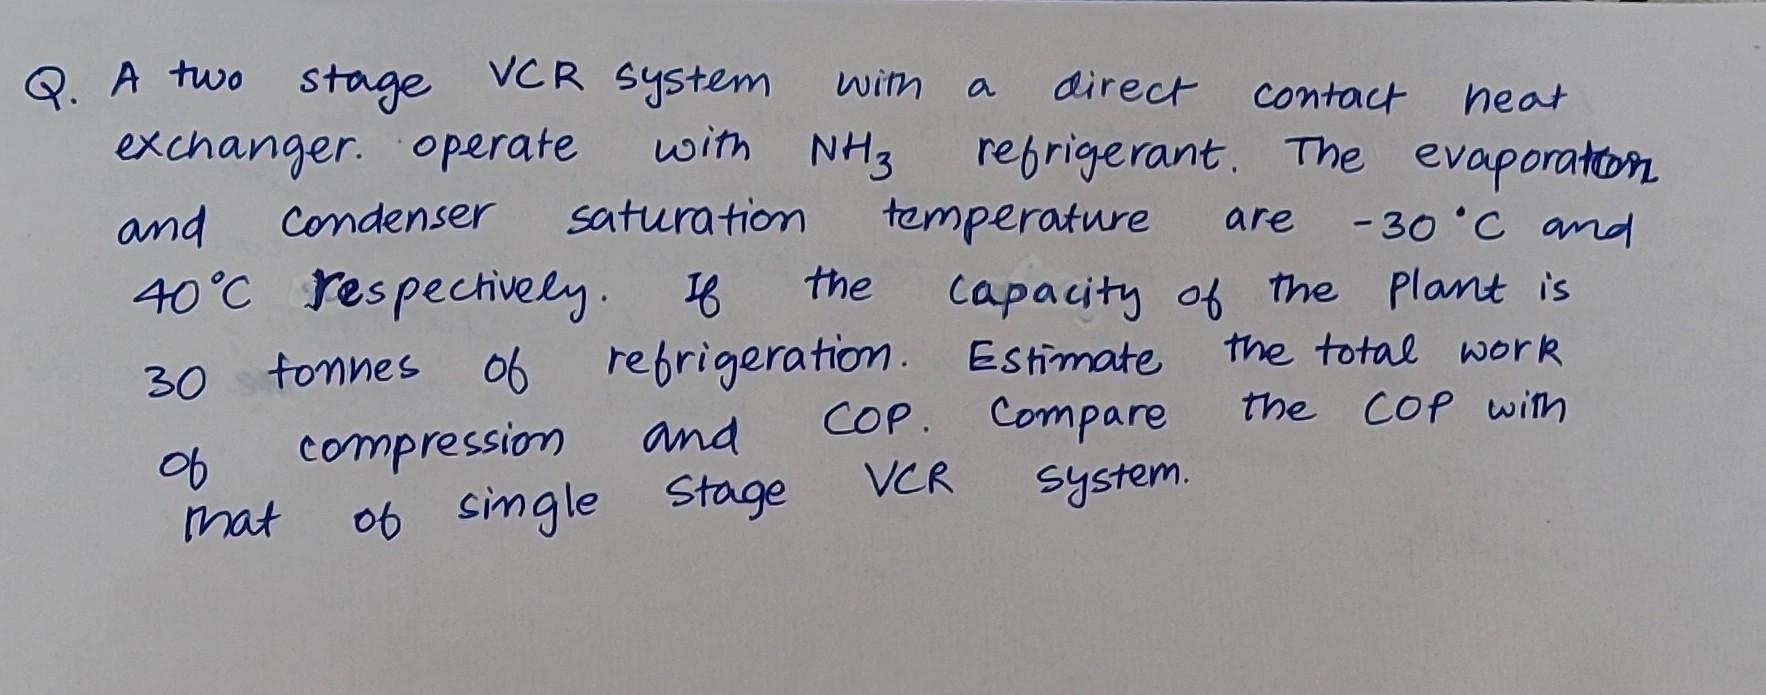 Q. A two stage VCR system with a direct contact heat
exchanger. operate with NH3 refrigerant. The evaporator
and condenser saturation temperature are -30°C and
40°C respectively. If the capacity of the plant is
30 tonnes of refrigeration. Estimate the total work
of compression and COP. Compare the COP with
that of single stage VCR system.